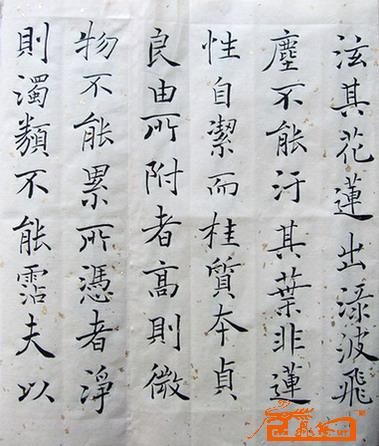 泫其花蓮出淥波飛
塵不能汙其葉非蓮
性自潔而桂質本貞
良由所附者高則微
物不能累所憑者淨
則濁類不能霑夫以